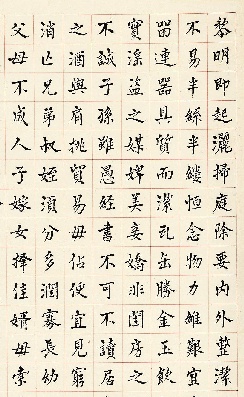 黎明即起灑掃庭除要內外整潔
不易半絲半縷恒念物力維艱宜
留連器具質而潔瓦缶勝金玉飲
實淫盜之媒婢美妾嬌非閨房之
不誠子孫雖愚經書不可不讀居
之酒與肩挑貿易毋佔便宜見窮
消亡兄弟叔姪須分多潤寡長幼
父母不成人子嫁女擇佳婿毋索